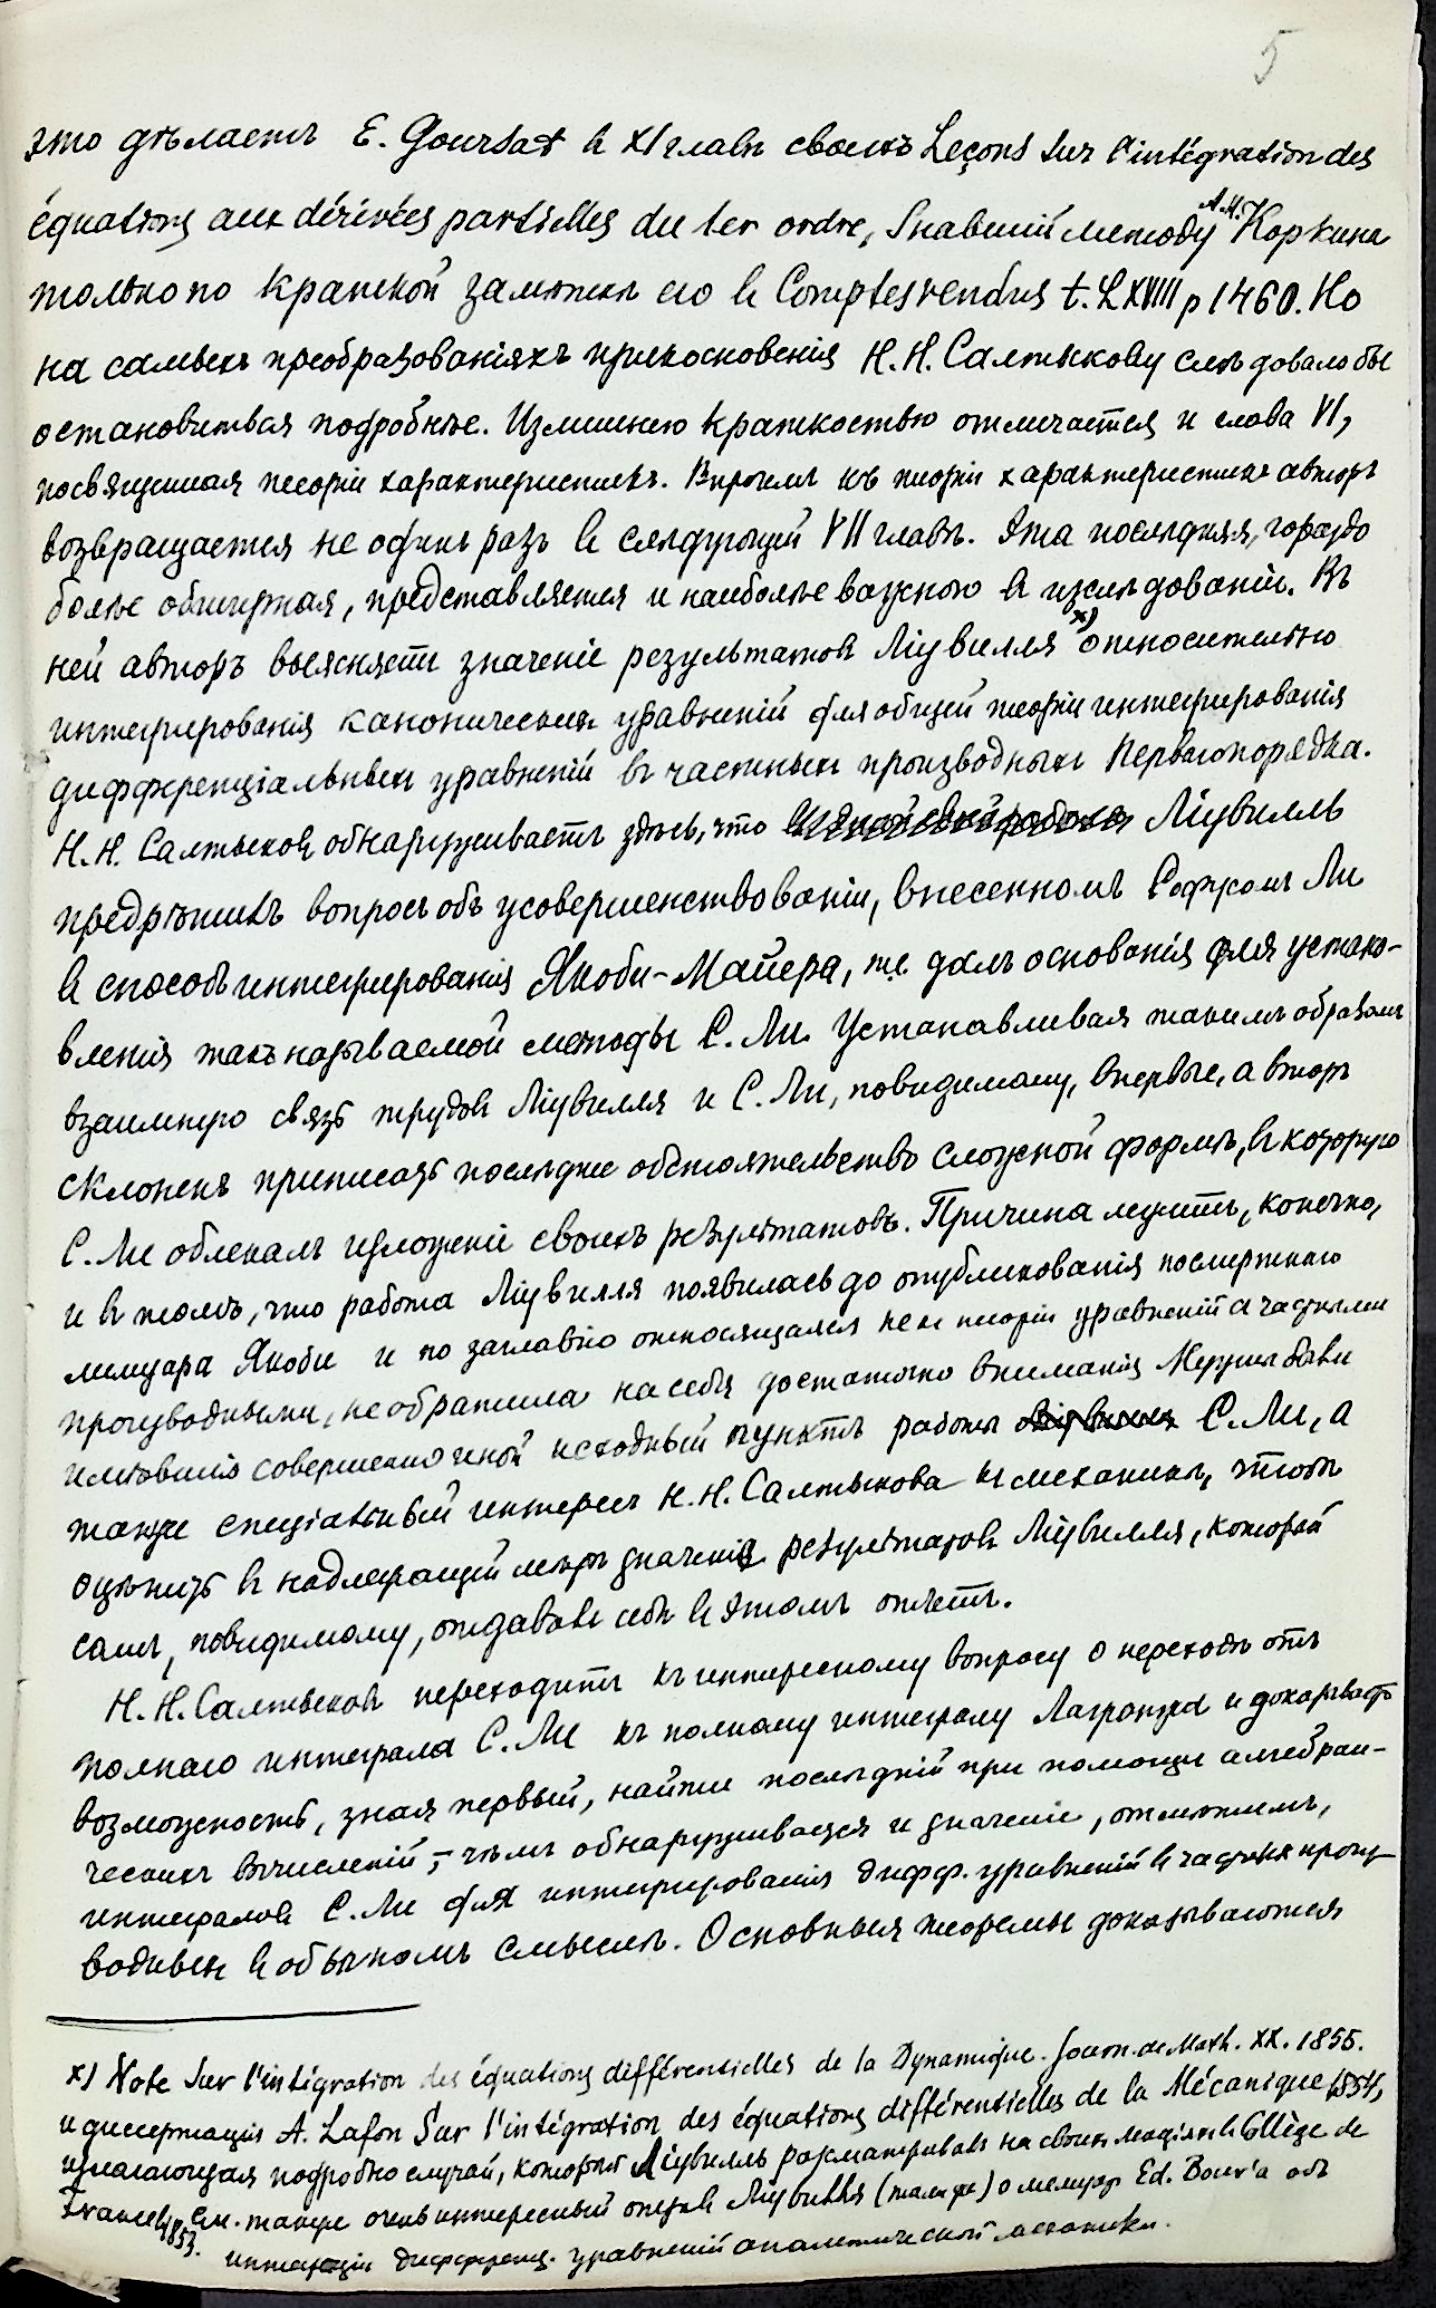 5
это дѣлаетъ E. Goursat въ XI главѣ своихъ Leçons sur l'intégration des
équations aux dérivées partielles du 1er ordre, знавшій методу А.Н. Коркина
только по краткой замѣткѣ его въ Comptes rendus t. LXVIII p 1460. Но
на самыхъ преобразованіяхъ прикосновенія Н.Н. Салтыкову слѣдовало бы
остановиться подробнѣе. Излишнею краткостью отличается и глава VI,
посвященная теоріи характеристикъ. Впрочемъ къ теоріи характеристикъ авторъ
возвращается не одинъ разъ въ слѣдующей VII главѣ. Эта послѣдняя, гораздо
болѣе обширная, представляется и наиболѣе важною въ изслѣдованіи. Въ
ней авторъ выясняетъ значеніе результатовъ Ліувилля x) относительно
интегрированія каноническихъ уравненій для общей теоріи интегрированія
дифференціальныхъ уравненій въ частныхъ производныхъ перваго порядка.
Н.Н. Салтыковъ обнаруживаетъ здѣсь, что Ліувилль
предрѣшилъ вопросъ объ усовершенствованіи, внесенномъ Софусомъ Ли
въ способъ интегрированія Якоби-Майера, т.е. далъ основанія для устано-
вленія такъ называемой методы С. Ли. Устанавливая такимъ образомъ
взаимную связь трудовъ Ліувилля и С. Ли, повидимому, впервые, авторъ
склоненъ приписать послѣднее обстоятельство сложной формѣ, въ которую
С. Ли облекалъ изложеніе своихъ результатовъ. Причина лежитъ, конечно,
и въ томъ, что работа Ліувилля появилась до опубликованія посмертнаго
мемуара Якоби и по заглавію относящаяся не къ теоріи уравненій съ частными
производными, не обратила на себя достаточно вниманія. Нуженъ былъ
имѣвшій совершенно иной исходный пунктъ работы С. Ли, а
также спеціальный интересъ Н.Н. Салтыкова къ механикѣ, чтобы
оцѣнить въ надлежащей мѣрѣ значеніе результатовъ Ліувилля, который
самъ, повидимому, отдавалъ себѣ въ этомъ отчетъ.
Н.Н. Салтыковъ переходитъ къ интересному вопросу о переходѣ отъ
полнаго интеграла С. Ли къ полному интегралу Лагранжа и доказываетъ
возможность, зная первый, найти послѣдній при помощи алгебраи-
ческихъ вычисленій, – чѣмъ обнаруживается и значеніе, отмѣтимъ,
интеграловъ С. Ли для интегрированія дифф. уравненій въ частныхъ произ-
водныхъ въ обычномъ смыслѣ. Основныя теоремы доказываются
x) Note sur l'intégration des équations différentielles de la Dynamique. Journ. de Math. XX. 1855.
и диссертація A. Lafon Sur l'intégration des équations différentielles de la Mécanique 1854,
излагающая подробно случай, который Ліувилль разсматривалъ на своихъ лекціяхъ въ Collège de
France въ 1853. См. также очень интересный отзывъ Ліувилля (тамъ же) о мемуарѣ Ed. Bour'а объ
интеграціи дифференц. уравненій аналитической механики.